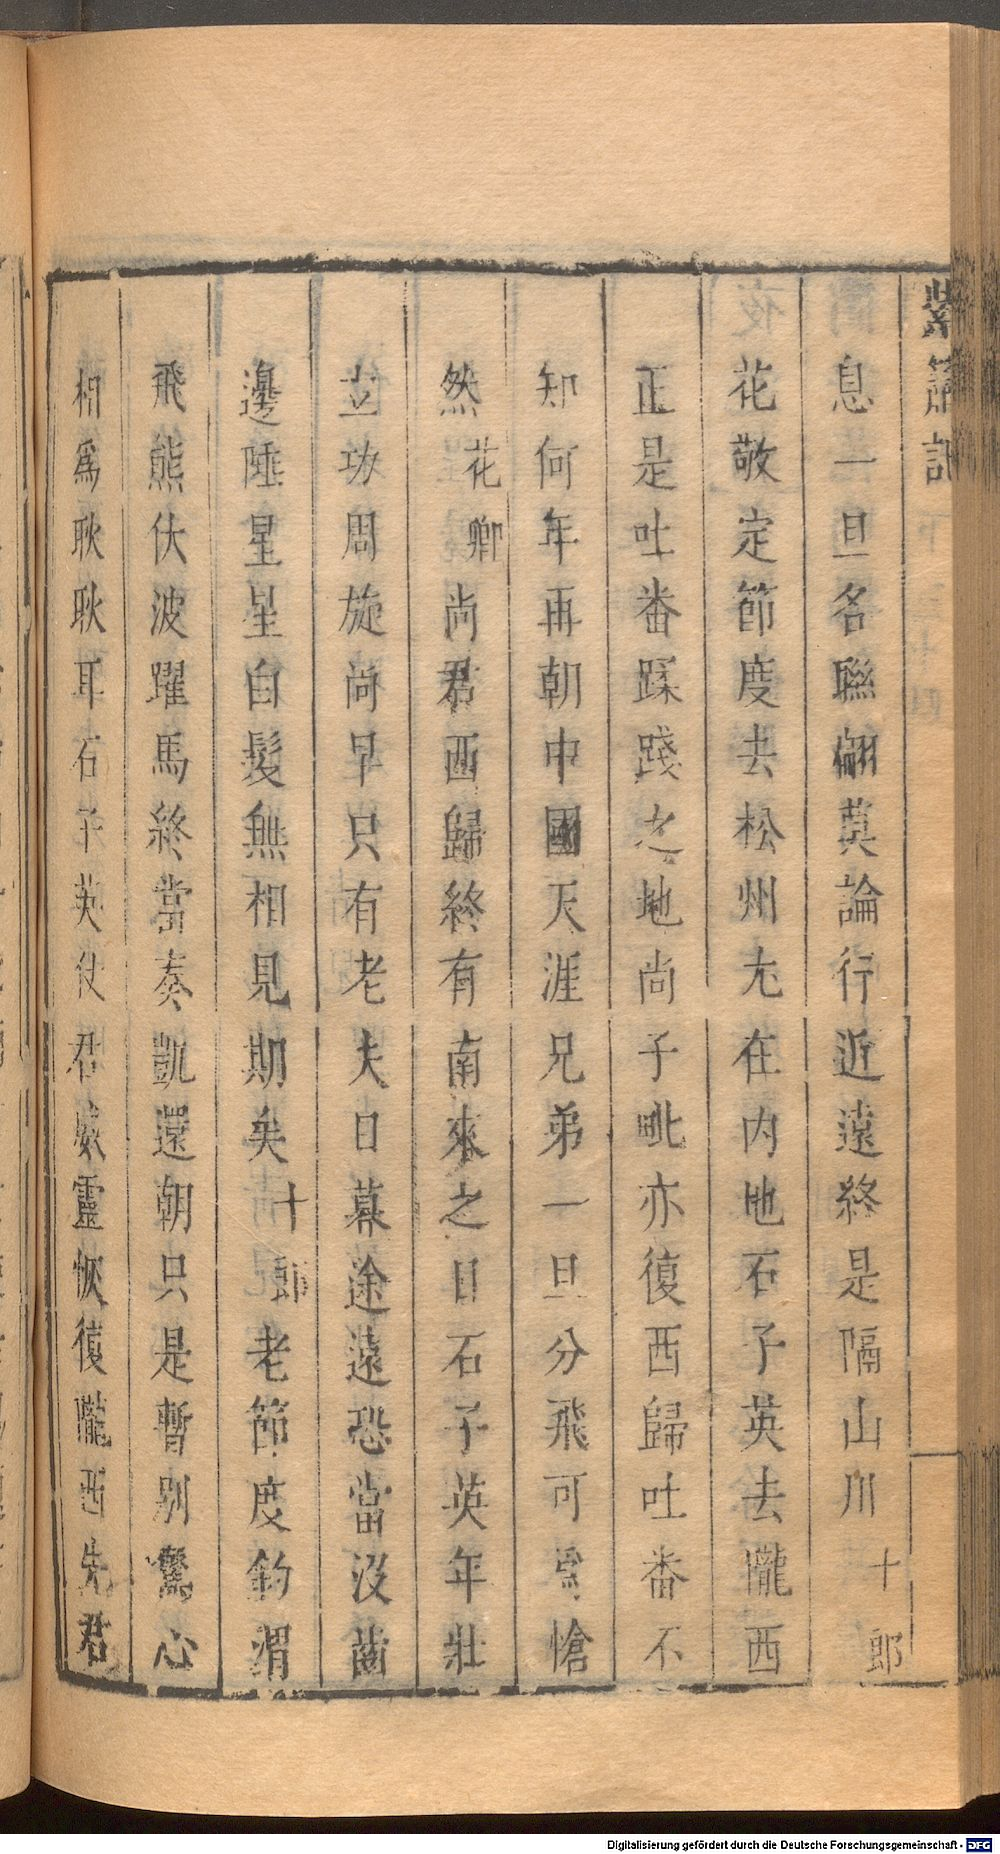 紫簫記
息一旦名聯翩莫論行近遠終是隔山川十郎
花敬定節度去松州尢在内地石子英去隴西
正是吐番蹂踐之地尚子毗亦復西歸吐番不
知何年再朝中國天涯兄弟一旦分飛可爲愴
然花卿尚君西歸終有南來之日石子英年壯
立功周旋尚早只有老夫日暮途遠恐當沒齒
邊陲星星白髮無相見期矣十郎老節度釣渭
飛熊伏波躍馬終當奏凱還朝只是暫別驚心
相爲耿耿耳石子英伏君威靈恢復隴西先君
Digitalisierung gefördert durch die Deutsche Forschungsgemeinschaft - DFG